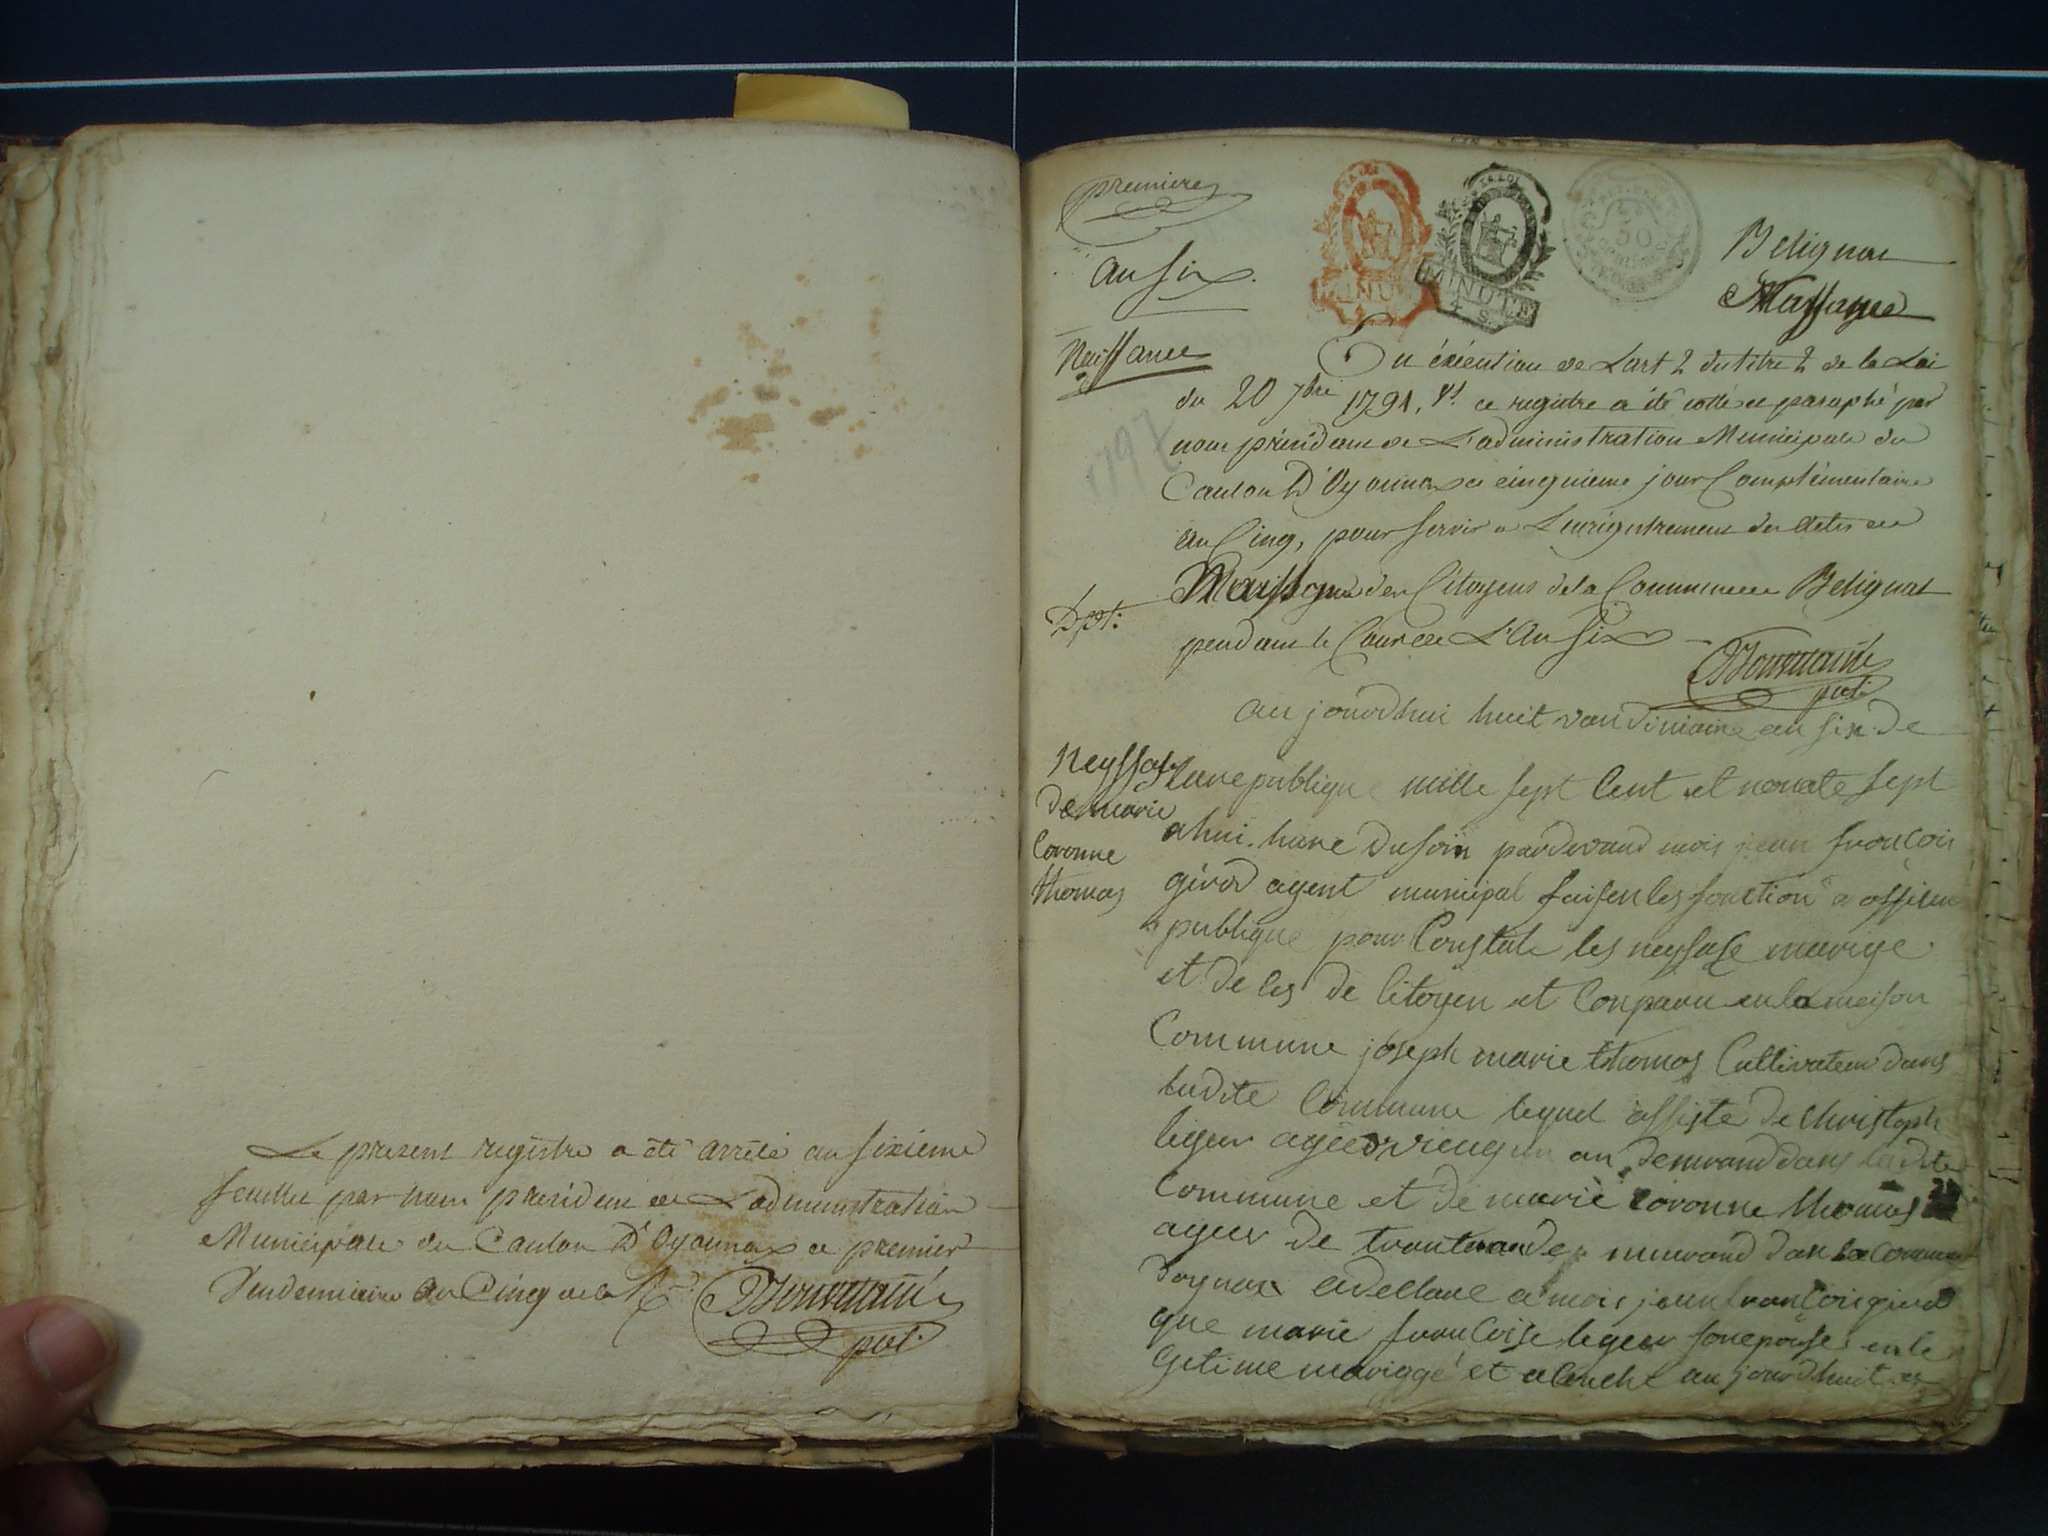 Le present registre a été arrêté au sixieme
feuillet par nous president de L'administration
Municipale du Canton D'Oyonnax ce premier
Vendemiaire an Cinq de la Rep.
pdt.
premiere
an six
Belignat
Naissance
En éxécution de L'art 2 du titre 2 de la Loi
du 20 7bre 1791, vst. ce registre a été cotté et paraphé par
nous président de L'administration Municipale du
Canton D'Oyonnax ce cinquieme jour Complémentaire
an Cinq, pour servir a L'enrégistrement des actes de
des Citoyens de la Commune Belignat
pendant le Cour de L'an Six
pdt.
1797
MINUTE
MINUTE
50
au jourdhui huit vandimiaire an six de
Neyssase
de marie
Coronne
thomas
la republique mille sept Cent et nonate sept
a hui hure du soir pardevand mois jean francois
girod agent municipal faisen les fonction a officier
publique pour Constate les neyssase marige
et deces de Citoyen et Conparu en la meison
Commune joseph marie thomas Cultivateur dans
ladite Commune lequel assiste de Christoph
legeur agée an demurand dans ladite
Commune et de marie Coronne thomas
ageer de demurand dan la Commune
doynax a mois jean francois girod
que marie francoise legeur son epouse en le
getime mariage et acouche au jourdhuit